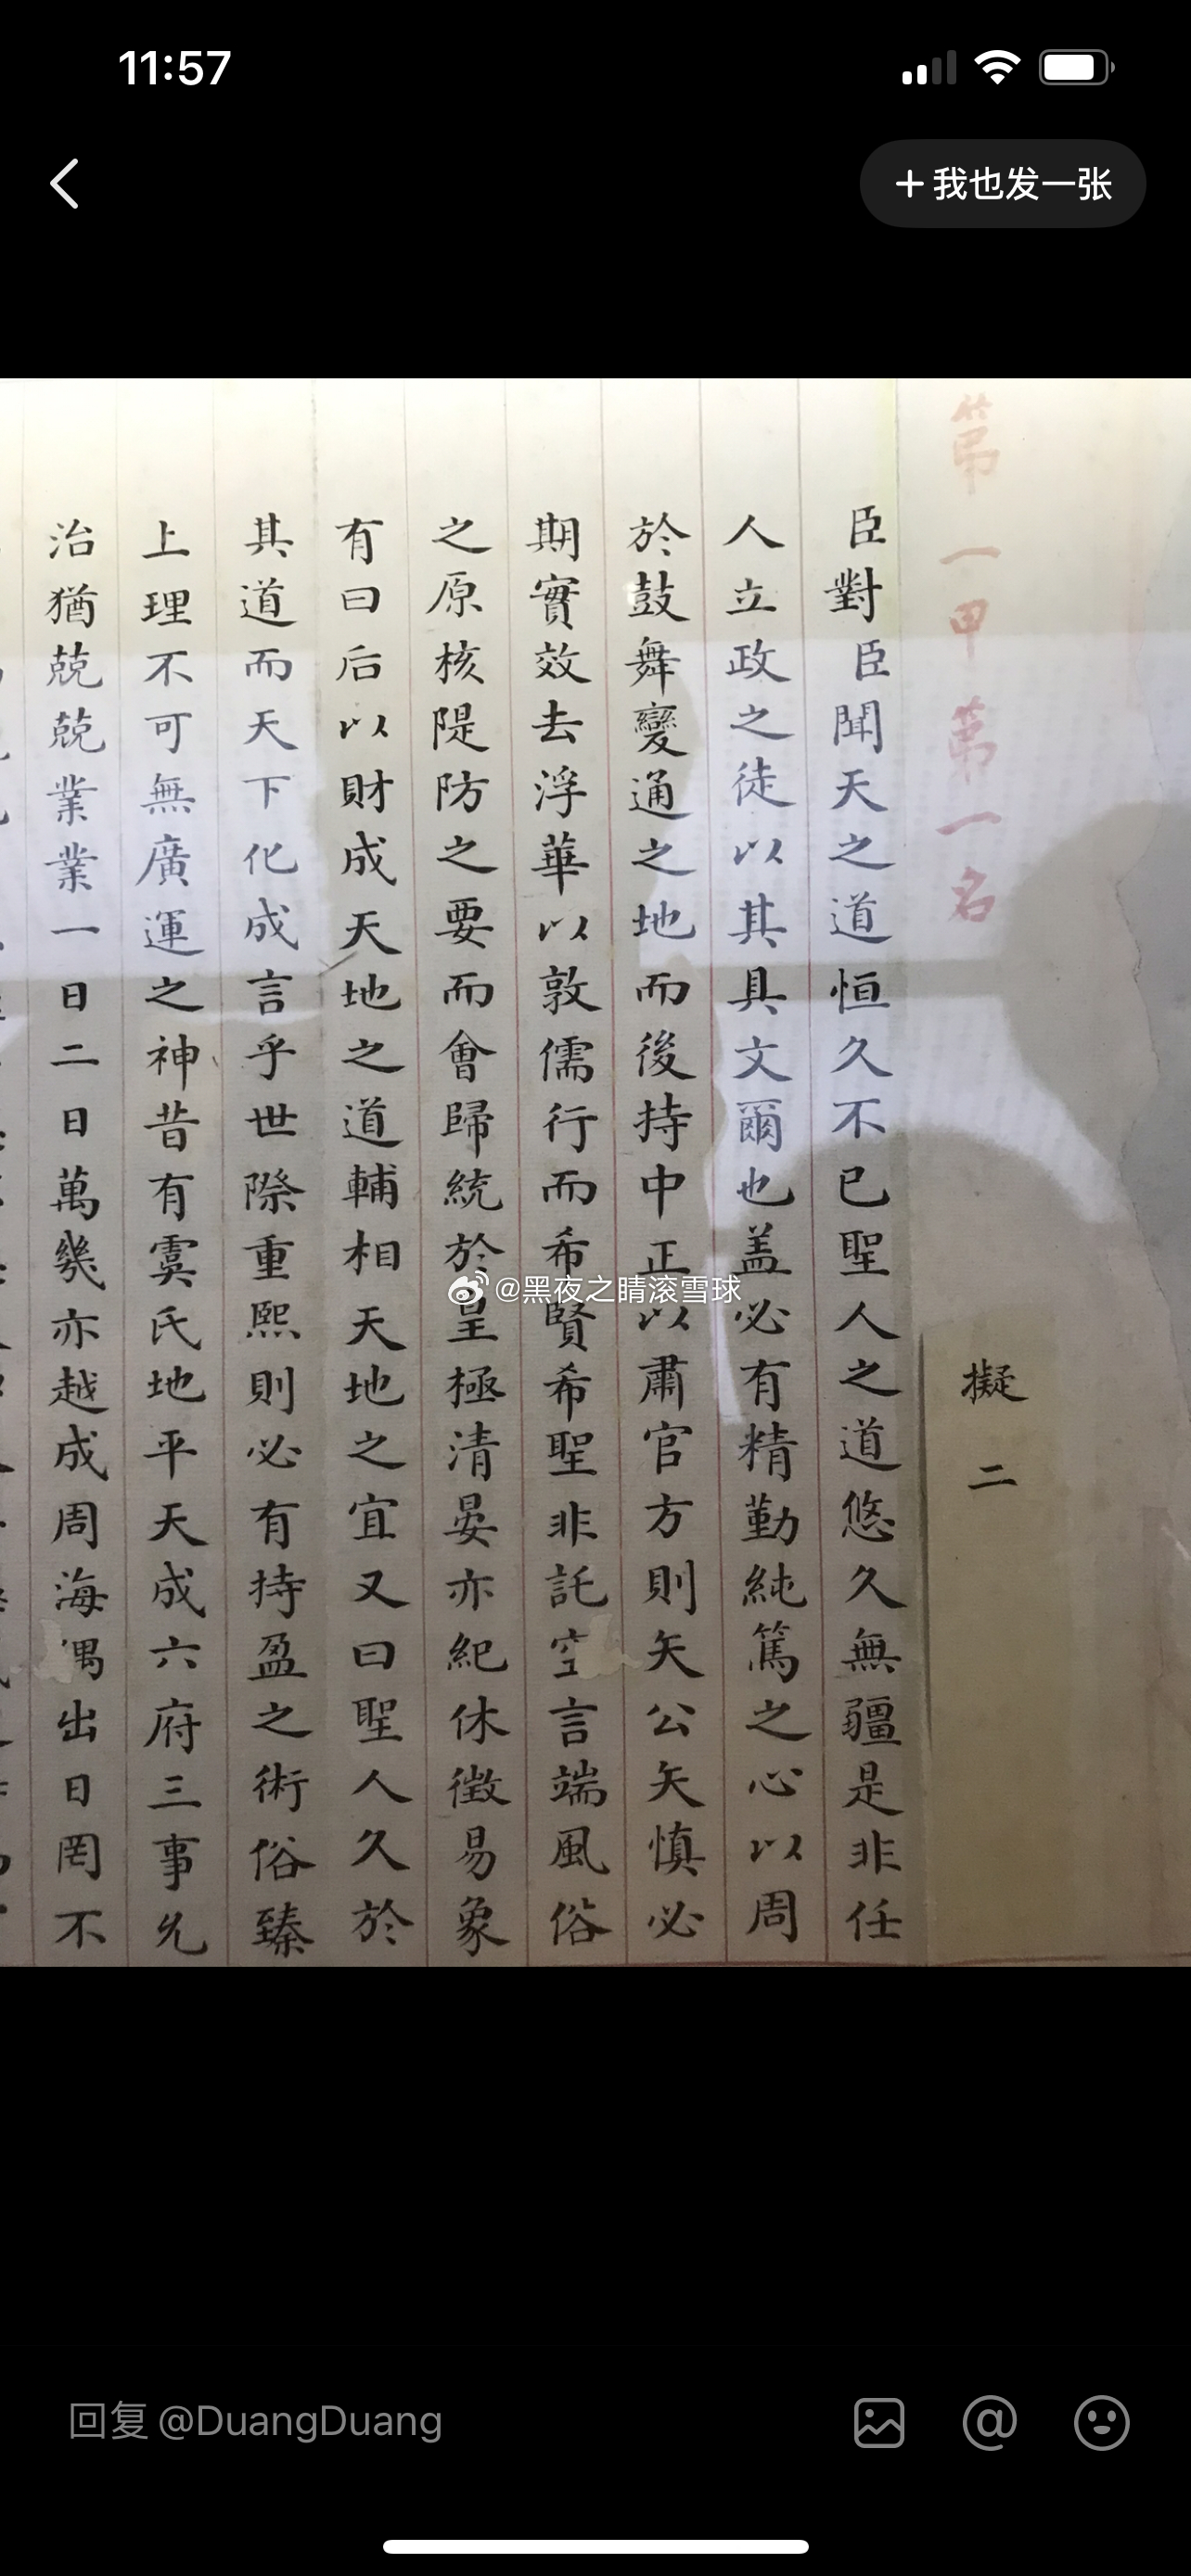 11:57
+我也发一张
第一甲第一名
擬二
臣對臣聞天之道恒久不已聖人之道悠久無疆是非任
人立政之徒以其具文爾也盖必有精勤純篤之心以周
於鼓舞變通之地而後持中正以肅官方則矢公矢慎必
期實效去浮華以敦儒行而希賢希聖非託空言端風俗
之原核隄防之要而會歸統於皇極清晏亦紀休徵易象
有曰后以財成天地之道輔相天地之宜又曰聖人久於
其道而天下化成言乎世際重熙則必有持盈之術俗臻
上理不可無廣運之神昔有虞氏地平天成六府三事允
治猶兢兢業業一日二日萬幾亦越成周海隅出日罔不
@黑夜之睛滚雪球
回复 @DuangDuang